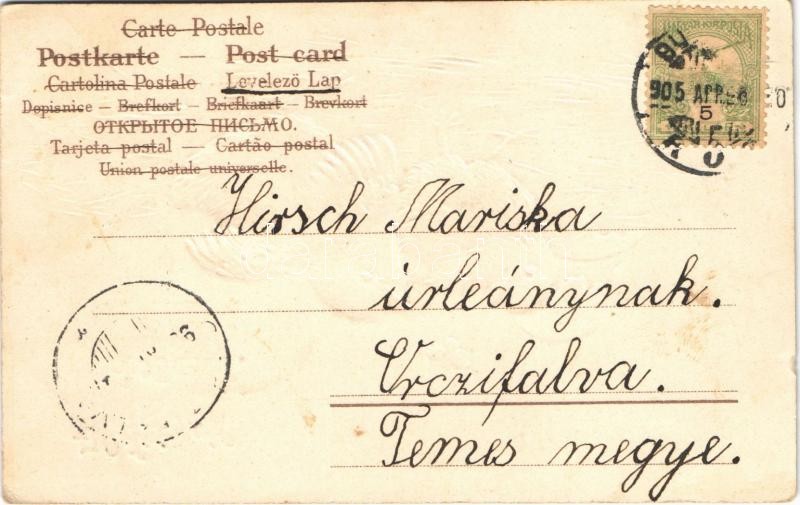 Carte Postale
Postkarte — Post card
Cartolina Postale Levelező Lap
Dopisnice – Brefkort – Briefkaart – Brevkort
ОТКРЫТОЕ ПИСЬМО.
Tarjeta postal — Cartão postal
Union postale universelle.
MAGYAR KIR. POSTA
905 APR. 26
5
Hirsch Mariska
úrleánynak.
Orczifalva.
Temes megye.